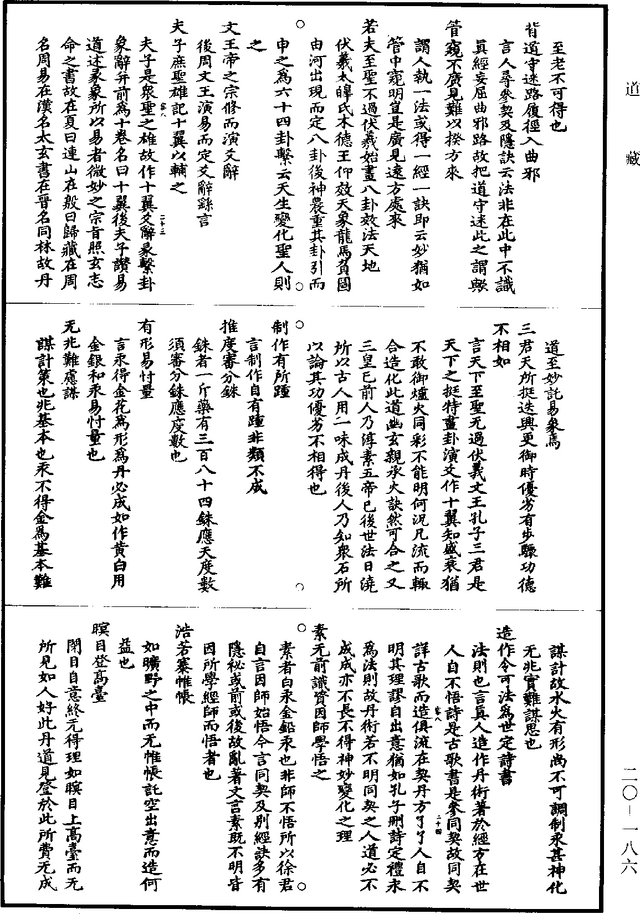 道藏
至老不可得也
背道守迷路履徑入曲邪
言人尋參契及隱訣云法非在此中不識
真經妄屈曲邪路故把道守迷此之謂歟
管窺不廣見難以揆方來
謂人執一法或得一經一訣即云妙猶如
管中窺明豈是廣見遠方處來
若夫至聖不過伏羲始畫八卦效法天地
伏羲太皥氏木德王仰效天象龍馬負圖
由河出現而定八卦後神農重其卦引而
申之為六十四卦繫云天生變化聖人則
之
文王帝之宗修而演爻辭
後周文王演易而定爻辭繇言
夫子庶聖雄記十翼以輔之
夫子是衆聖之雄故作十翼爻辭彖繫卦
象辭并前為十卷名曰十翼後夫子讚易
道述彖象所以易者微妙之宗旨照玄志
命之書故在夏曰連山在殷曰歸藏在周
名周易在漢名太玄書在晉名同林故丹
道至妙託易象焉
三君天所挺迭興更御時優劣有步驟功德
不相如
言天下至聖无過伏羲文王孔子三君是
天下之挺特畫卦演爻作十翼知盛衰猶
不敢御爐火同彩不能明何況凡流而輒
合造化此道幽玄親承火訣然可合之又
三皇已前人乃淳素五帝已後世法日澆
所以古人用一味成丹後人乃知衆石所
以論其功優劣不相得也
制作有所踵
言制作自有踵非類不成
推度審分銖
銖者一斤藥有三百八十四銖應天度數
須審分銖應度數也
有形易忖量
言汞得金花為形為丹必成如作黃白用
金銀和汞易忖量也
无兆難慮謀
謀計策也兆基本也汞不得金為基本難
謀計故水火有形尚不可調制汞其神化
无兆實難謀思也
造作令可法為世定詩書
法則也言真人造作丹術著於經方在世
人自不悟詩是古歌書是參同契故同契
詳古歌而造俱流在契丹方了了人自不
明其理謬自出意猶如孔子刪詩定禮永
為法則故丹術若不明同契之人道必不
成成亦不長不得神妙變化之理
素无前識資因師學悟之
素者白汞金鉛汞也非師不悟所以徐君
自言因師始悟今言同契及別經訣多有
隱秘或前或後故亂著文言素既不明皆
因所學經師而悟者也
浩若褰帷帳
如曠野之中而无帷帳託空出意而造何
益也
瞑目登高臺
閉目自意終无得理如瞑目上高臺而无
所見如人好此丹道見登於此所費无成
二〇—一八六